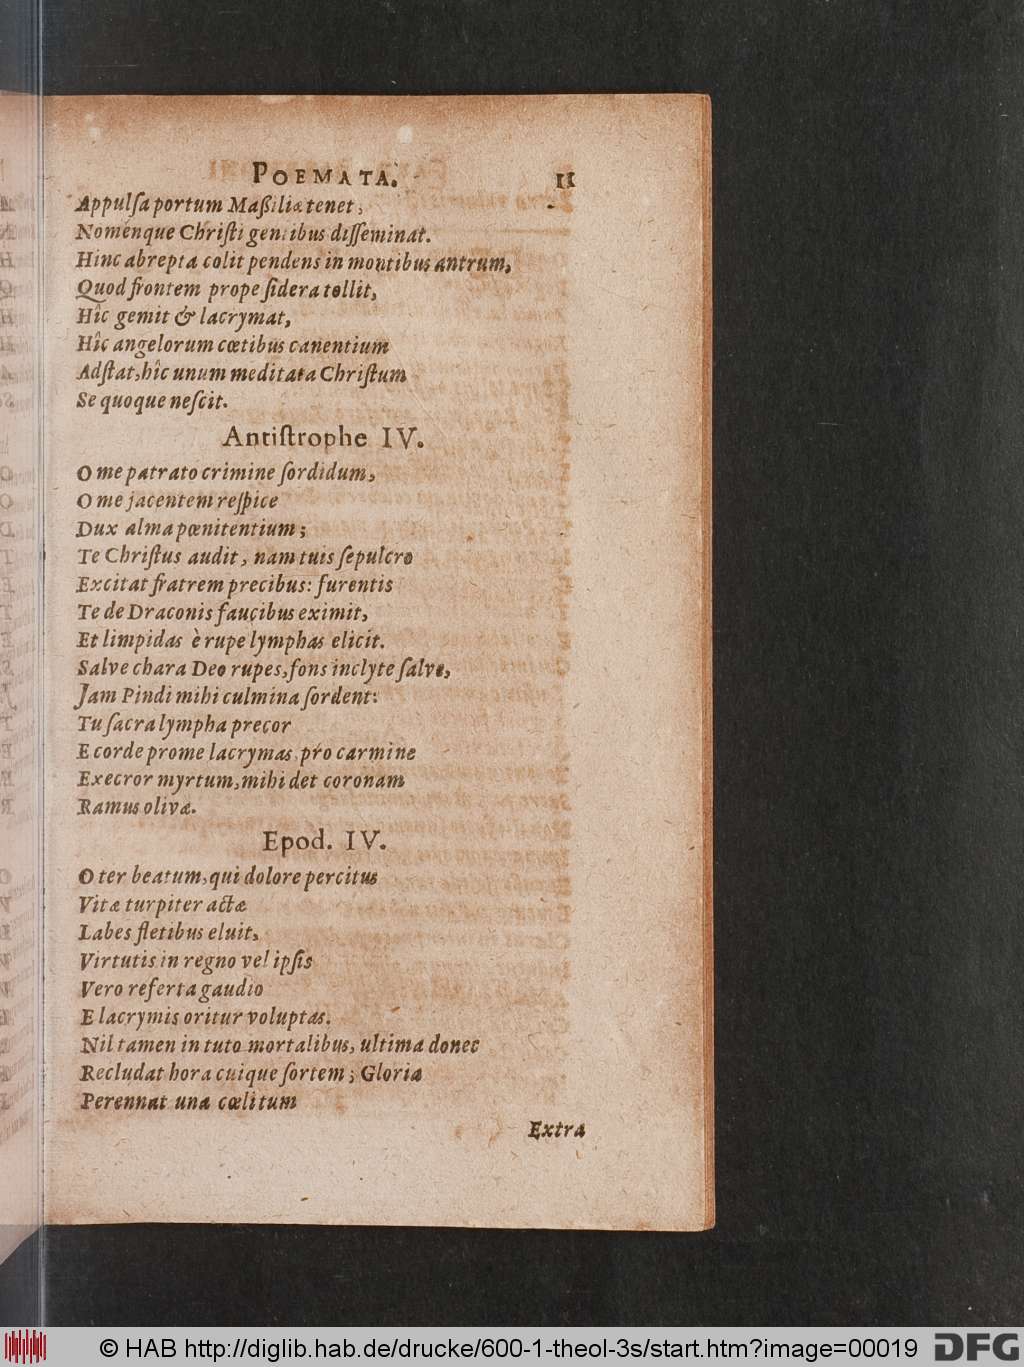 POEMATA. 11
Appulſa portum Maßiliæ tenet,
Noménque Chriſti gentibus diſſeminat.
Hinc abrepta colit pendens in montibus antrum,
Quod frontem prope ſidera tollit,
Hîc gemit & lacrymat,
Hîc angelorum cœtibus canentium
Adſtat, hîc unum meditata Chriſtum
Se quoque neſcit.
Antiſtrophe IV.
O me patrato crimine ſordidum,
O me jacentem reſpice
Dux alma pœnitentium;
Te Chriſtus audit, nam tuis ſepulcro
Excitat fratrem precibus: furentis
Te de Draconis faucibus eximit,
Et limpidas è rupe lymphas elicit.
Salve chara Deo rupes, fons inclyte ſalve,
Jam Pindi mihi culmina ſordent:
Tu ſacra lympha precor
E corde prome lacrymas, pro carmine
Execror myrtum, mihi det coronam
Ramus olivæ.
Epod. IV.
O ter beatum, qui dolore percitus
Vitæ turpiter actæ
Labes fletibus eluit,
Virtutis in regno vel ipſis
Vero referta gaudio
E lacrymis oritur voluptas.
Nil tamen in tuto mortalibus, ultima donec
Recludat hora cuique ſortem; Gloria
Perennat una cœlitum
Extra
© HAB http://diglib.hab.de/drucke/600-1-theol-3s/start.htm?image=00019
DFG